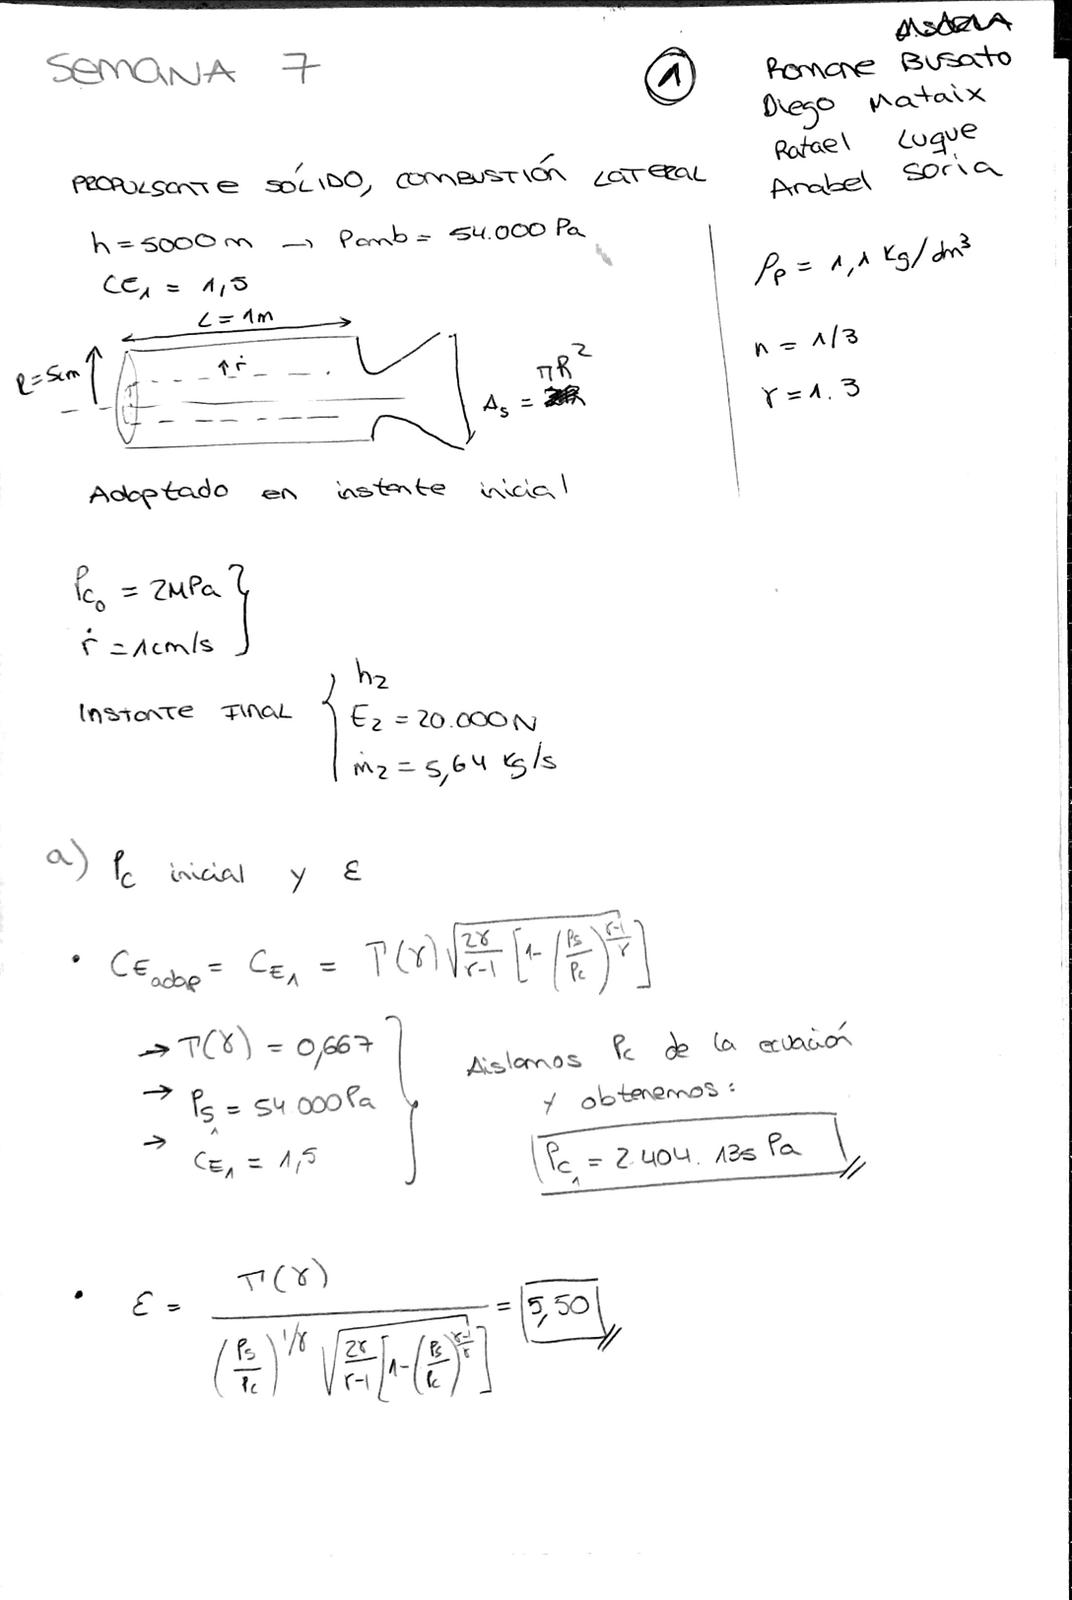 SEMANA 7
1
Romane Busato
Diego Mataix
Rafael Luque
Anabel Soria
PROPULSANTE SÓLIDO, COMBUSTIÓN LATERAL
h = 5000 m → Pamb = 54.000 Pa
CE₁ = 1,5
L = 1m
R = 5cm
ṙ
A_s = πR²
ρ_p = 1,1 kg/dm³
n = 1/3
γ = 1.3
Adaptado en instante inicial
Pc₀ = 2MPa }
ṙ = 1cm/s }
INSTANTE FINAL { h₂
E₂ = 20.000N
ṁ₂ = 5,64 kg/s
a) Pc inicial y ε
• CE_adap = CE₁ = Γ(γ) √(2γ/(γ-1) [1-(Ps/Pc)^((γ-1)/γ)])
→ Γ(γ) = 0,667
→ Ps₁ = 54 000 Pa
→ CE₁ = 1,5
Aislamos Pc de la ecuación
y obtenemos:
Pc₁ = 2.404.135 Pa
• ε = Γ(γ) / ((Ps/Pc)^(1/γ) √(2γ/(γ-1) [1-(Ps/Pc)^((γ-1)/γ)])) = 5,50